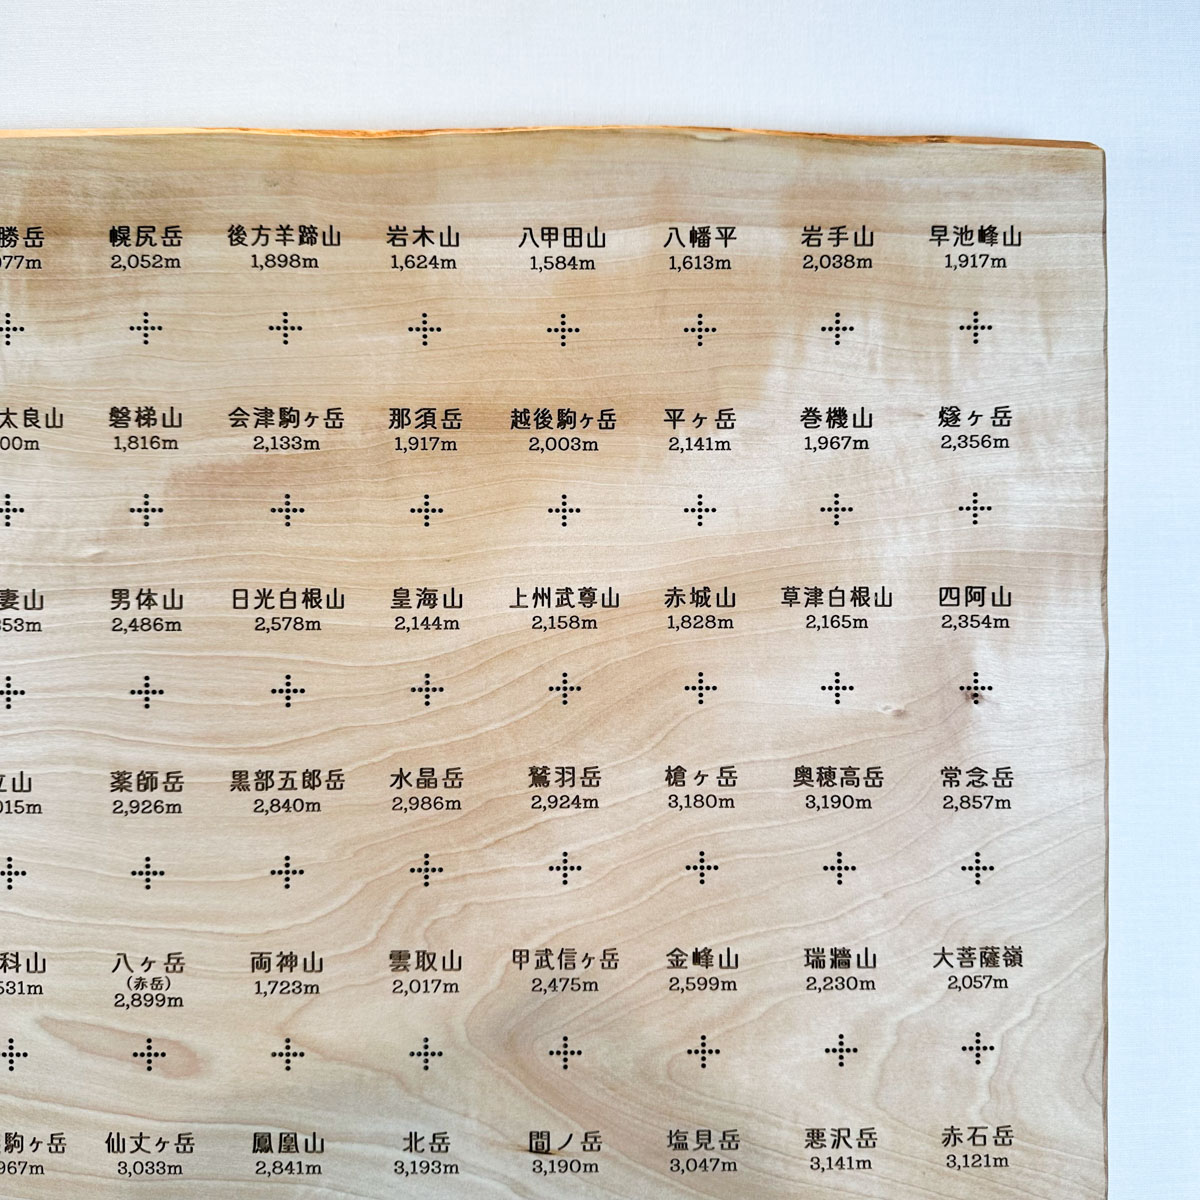 勝岳 幌尻岳 後方羊蹄山 岩木山 八甲田山 八幡平 岩手山 早池峰山
077m 2,052m 1,898m 1,624m 1,584m 1,613m 2,038m 1,917m
太良山 磐梯山 会津駒ヶ岳 那須岳 越後駒ヶ岳 平ヶ岳 巻機山 燧ヶ岳
00m 1,816m 2,133m 1,917m 2,003m 2,141m 1,967m 2,356m
妻山 男体山 日光白根山 皇海山 上州武尊山 赤城山 草津白根山 四阿山
353m 2,486m 2,578m 2,144m 2,158m 1,828m 2,165m 2,354m
立山 薬師岳 黒部五郎岳 水晶岳 鷲羽岳 槍ヶ岳 奥穂高岳 常念岳
015m 2,926m 2,840m 2,986m 2,924m 3,180m 3,190m 2,857m
科山 八ヶ岳 両神山 雲取山 甲武信ヶ岳 金峰山 瑞牆山 大菩薩嶺
(赤岳)
531m 2,899m 1,723m 2,017m 2,475m 2,599m 2,230m 2,057m
駒ヶ岳 仙丈ヶ岳 鳳凰山 北岳 間ノ岳 塩見岳 悪沢岳 赤石岳
967m 3,033m 2,841m 3,193m 3,190m 3,047m 3,141m 3,121m